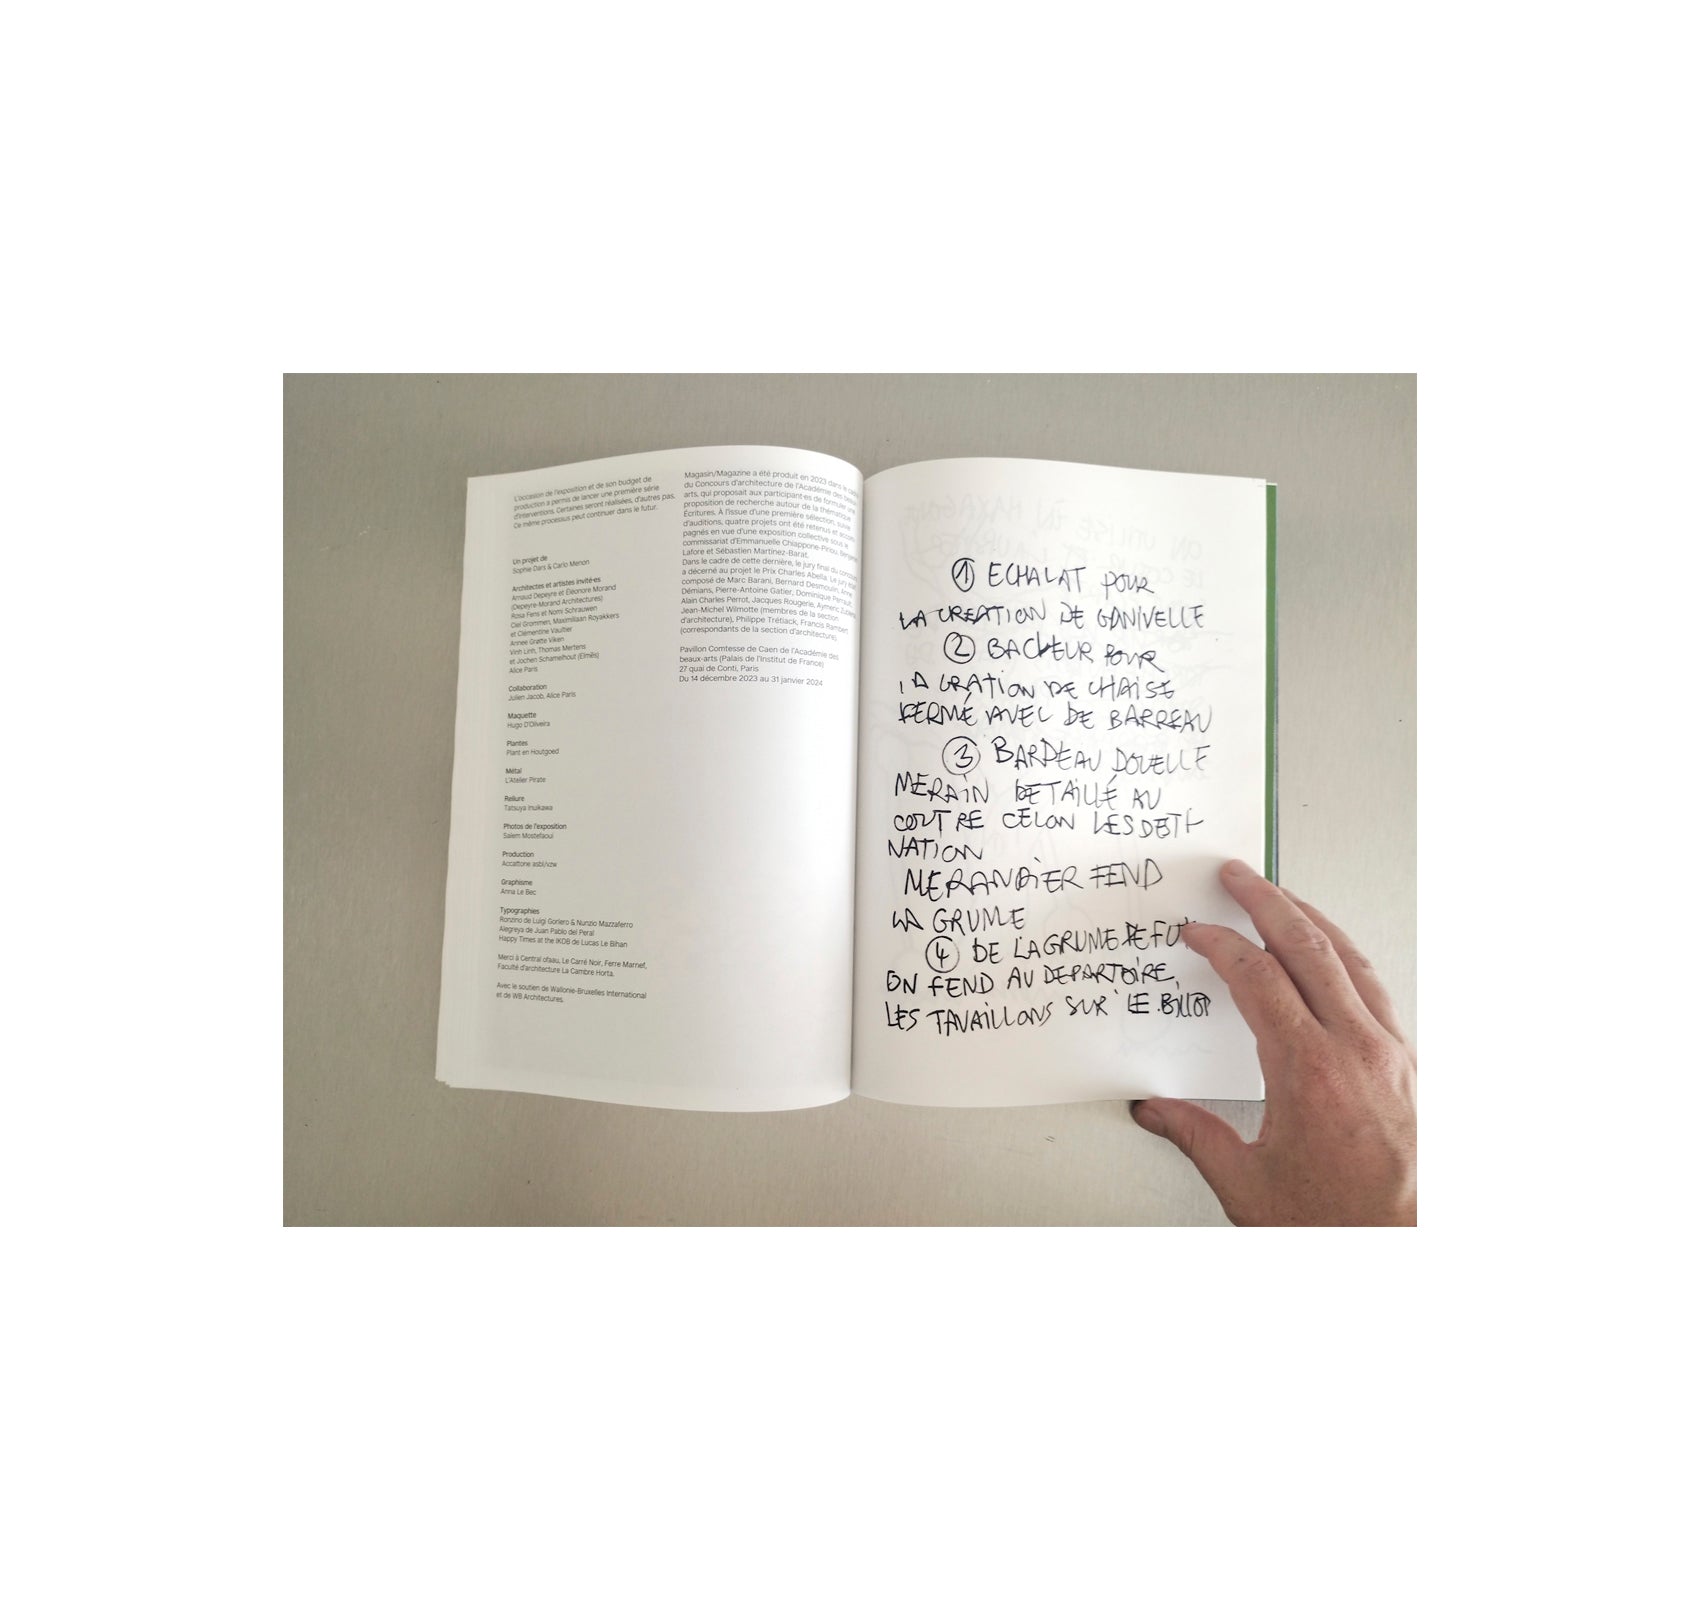 L'occasion de l'exposition et de son budget de
production a permis de lancer une première série
d'interventions. Certaines seront réalisées, d'autres pas.
Ce même processus peut continuer dans le futur.
Un projet de
Sophie Dars & Carlo Menon
Architectes et artistes invité·es
Arnaud Depeyre et Éléonore Morand
(Depeyre-Morand Architectures)
Rosa Fens et Nomi Schrauwen
Ciel Grommen, Maximiliaan Royakkers
et Clémentine Vaultier
Annee Grøtte Viken
Vinh Linh, Thomas Mertens
et Jochen Schamelhout (Elmēs)
Alice Paris
Collaboration
Julien Jacob, Alice Paris
Maquette
Hugo D'Oliveira
Plantes
Plant en Houtgoed
Métal
L'Atelier Pirate
Reliure
Tatsuya Inuikawa
Photos de l'exposition
Salem Mostefaoui
Production
Accattone asbl/vzw
Graphisme
Anna Le Bec
Typographies
Ronzino de Luigi Gorlero & Nunzio Mazzaferro
Alegreya de Juan Pablo del Peral
Happy Times at the IKOB de Lucas Le Bihan
Merci à Central ofaau, Le Carré Noir, Ferre Marnef,
Faculté d'architecture La Cambre Horta.
Avec le soutien de Wallonie-Bruxelles International
et de WB Architectures.
Magasin/Magazine a été produit en 2023 dans le cadre
du Concours d'architecture de l'Académie des beaux-
arts, qui proposait aux participant·es de formuler une
proposition de recherche autour de la thématique
Écritures. À l'issue d'une première sélection, suivie
d'auditions, quatre projets ont été retenus et
pagnés en vue d'une exposition collective sous le
commissariat d'Emmanuelle Chiappone-Piriou, Benjamin
Lafore et Sébastien Martinez-Barat.
Dans le cadre de cette dernière, le jury final du concours
a décerné au projet le Prix Charles Abella. Le jury était
composé de Marc Barani, Bernard Desmoulin, Anne
Démians, Pierre-Antoine Gatier, Dominique Perrault,
Alain Charles Perrot, Jacques Rougerie, Aymeric Zublena,
Jean-Michel Wilmotte (membres de la section
d'architecture), Philippe Trétiack, Francis Rambert
(correspondants de la section d'architecture).
Pavillon Comtesse de Caen de l'Académie des
beaux-arts (Palais de l'Institut de France)
27 quai de Conti, Paris
Du 14 décembre 2023 au 31 janvier 2024
① ECHALAT POUR
LA CREATION DE GANIVELLE
② BACLEUR POUR
LA CRATION DE CHAISE
FERMÉ AVEC DE BARREAU
③ BARDEAU DOUELLE
MERAIN DETAILLÉ AU
COUTRE CELON LES DETI-
NATION
MERANDIER FEND
LA GRUME
④ DE LA GRUME DE
ON FEND AU DEPARTOIRE,
LES TAVAILLONS SUR LE BILLOT